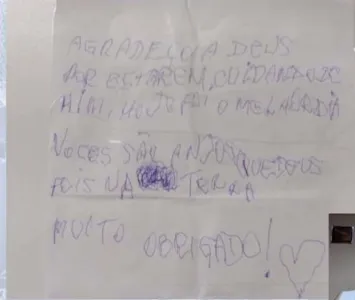 AGRADEÇO A DEUS
POR ESTAREM CUIDANDO DE
MIM, HOJE FOI O MELHOR DIA
VOCES SÃO ANJOS QUE DEUS
POIS NA TERRA
MUITO OBRIGADO!